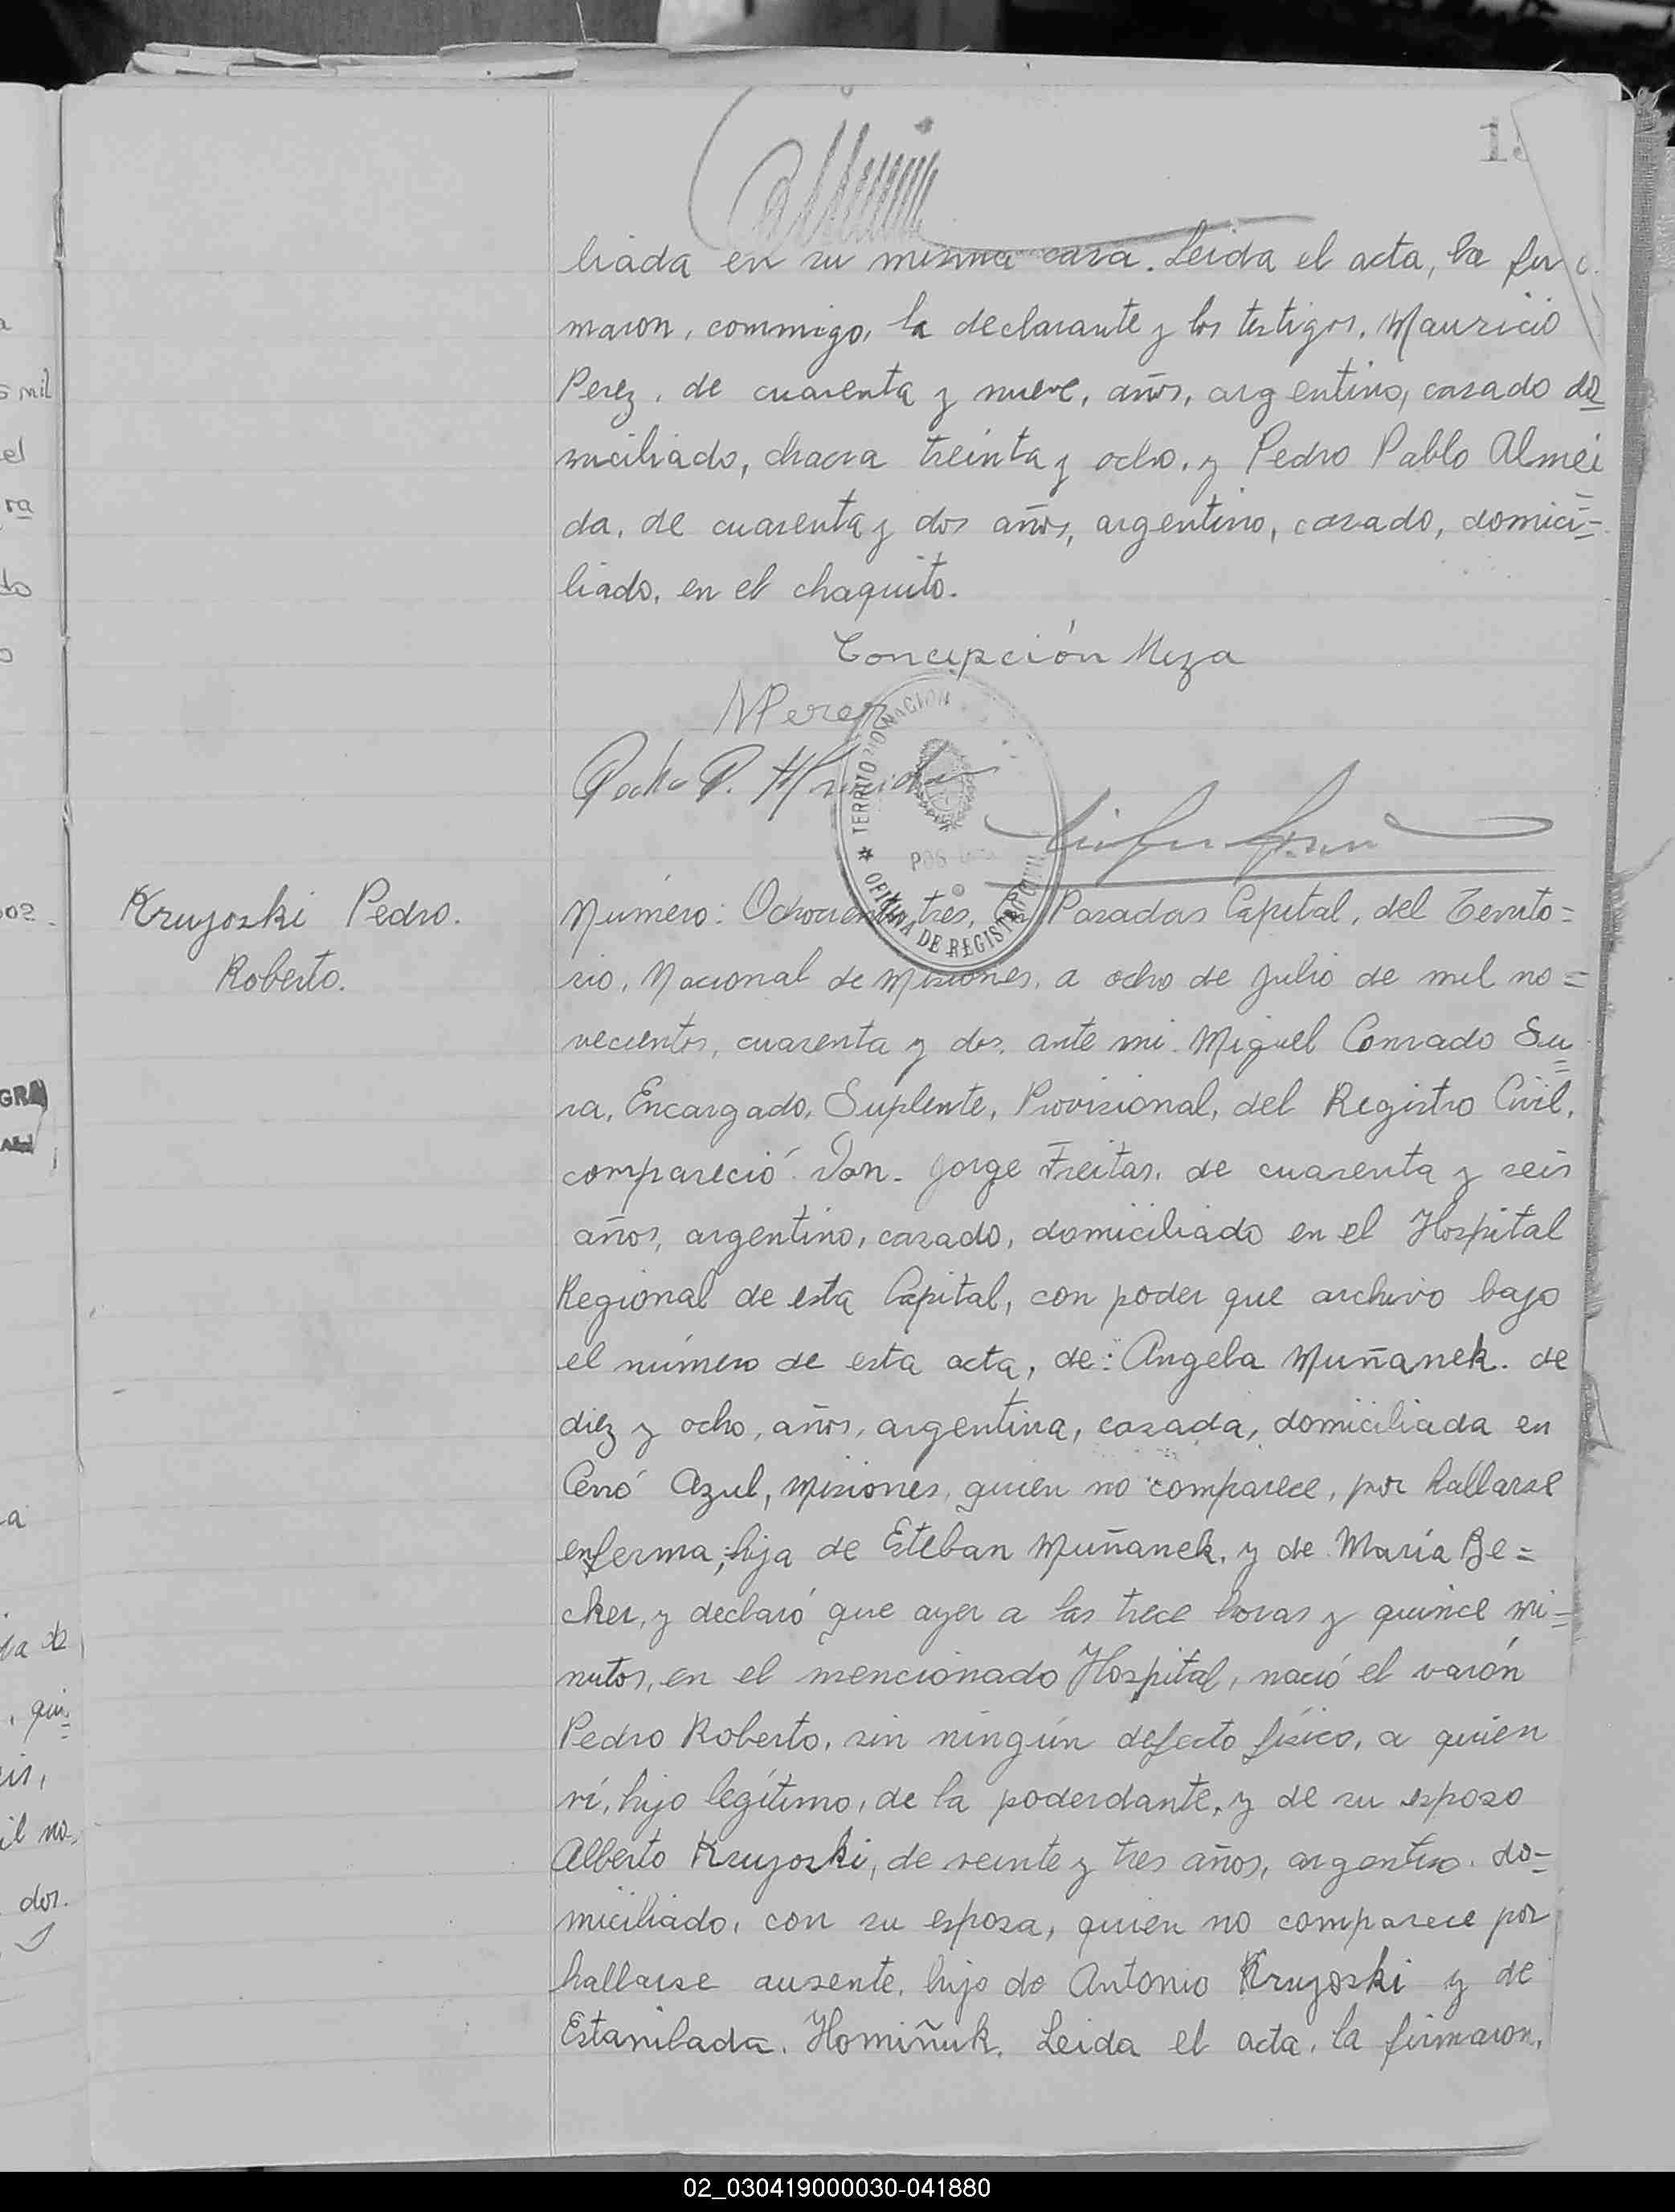 liada en su misma casa. Leida el acta, la fir
maron, conmigo, la declarante y los testigos, Mauricio
Perez, de cuarenta y nueve, años, argentino, casado do
miciliado, chacra treinta y ocho, y Pedro Pablo Almei
da, de cuarenta y dos años, argentino, casado, domici=
liado, en el chaquito.
Concepción Meza
MPerez
Pedro P. Almeida
TERRITORIO NACION
OFICINA DE REGISTRO CIVIL
Krujoski Pedro.
Roberto.
Número: Ochocientos tres, En Posadas Capital, del Territo=
rio, Nacional de Misiones, a ocho de Julio de mil no=
vecientos, cuarenta y dos, ante mi Miguel Conrado Su
ra, Encargado, Suplente, Provisional, del Registro Civil,
compareció Don. Jorge Freitas, de cuarenta y seis
años, argentino, casado, domiciliado en el Hospital
Regional de esta Capital, con poder que archivo bajo
el número de esta acta, de: Angela Muñanek. de
diez y ocho, años, argentina, casada, domiciliada en
Cerró Azul, Misiones, quien no comparece, por hallarse
enferma; hija de Esteban Muñanek, y de María Be=
cker, y declaró que ayer a las trece horas y quince mi=
nutos, en el mencionado Hospital, nació el varón
Pedro Roberto, sin ningún defecto físico, a quien
ví, hijo legítimo, de la poderdante, y de su esposo
Alberto Krujoski, de veinte y tres años, argentino. do=
miciliado, con su esposa, quien no comparece por
hallarse ausente, hijo de Antonio Krujoski y de
Estanilada. Homiñuk. Leida el acta, la firmaron,
02_030419000030-041880